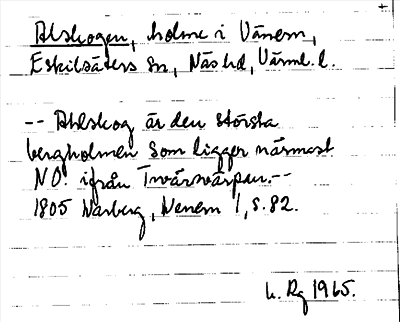 Alskogen, holme i Vänern,
Eskilsäters sn, Näs hd, Värml. l.
-- Ahlskog är den största
bergholmen som ligger närmast
NO. ifrån Tvärsvärpan. --
1805 Warberg, Wenern 1, s. 82.
L. Rg 1965.